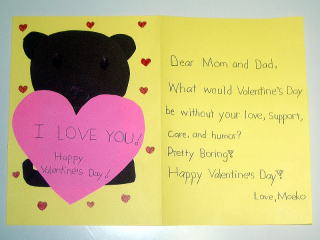 I LOVE YOU!
Happy
Valentine's Day!
Dear Mom and Dad,
What would Valentine's Day
be without your love, support,
care, and humor?
Pretty Boring!
Happy Valentine's Day!
Love, Moeko